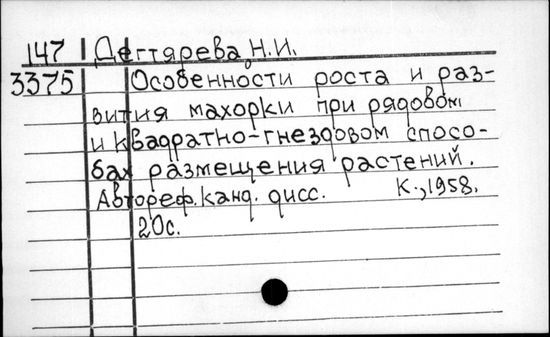 147 Дегтярева, Н.И.
3375 Особенности роста и раз-
вития махорки при рядовом
и квадратно-гнездовом спосо-
бах размещения растений.
Автореф. канд. дисс. К., 1958.
20с.